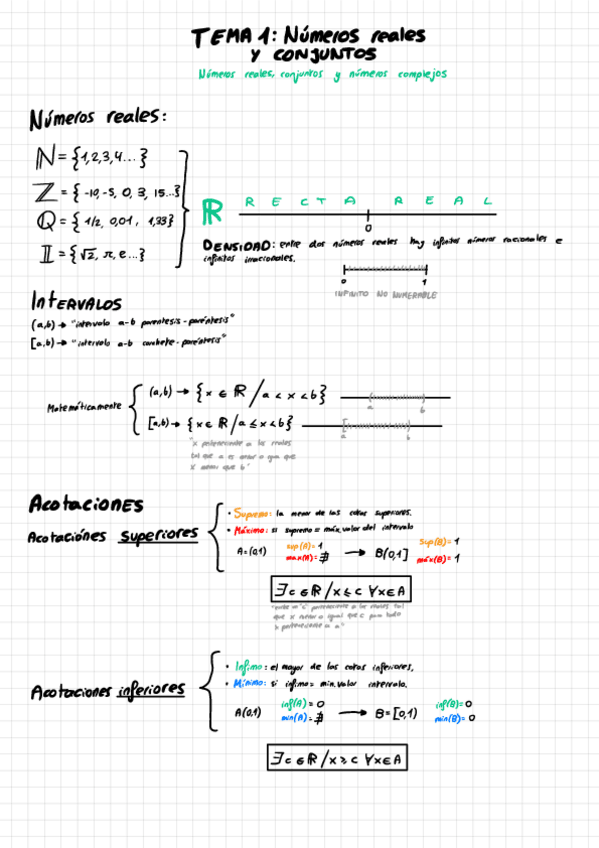 TEMA 1: Números reales
Y CONJUNTOS
Números reales, conjuntos y números complejos
Números reales:
ℕ = {1,2,3,4...}
ℤ = {-10,-5, 0, 3, 15...}
ℚ = {1/2, 0,01, 1,33}
𝕀 = {√2, π, e...}
ℝ RECTA REAL
0
DENSIDAD: entre dos números reales hay infinitos números racionales e
infinitos irracionales.
0 1
INFINITO NO NUMERABLE
INTERVALOS
(a,b) → "intervalo a-b paréntesis-paréntesis"
[a,b) → "intervalo a-b corchete-paréntesis"
Matemáticamente
(a,b) → {x ∈ ℝ / a < x < b}
a b
[a,b) → {x ∈ ℝ / a ≤ x < b}
a b
"x perteneciente a los reales
tal que a es menor o igual que
x menor que b"
Acotaciones
Acotaciónes superiores
· Supremo: la menor de las cotas superiores.
· Máximo: si supremo = máx. valor del intervalo
A=(0,1) sup(A)= 1 → B(0,1] sup(B)= 1
max(A)= ∄ máx(B)= 1
∃c ∈ ℝ / x ≤ c ∀x∈A
"existe un c perteneciente a los reales tal
que x menor o igual que c para todo
x perteneciente a a"
Acotaciones inferiores
· Infimo: el mayor de las cotas inferiores.
· Mínimo: si infimo = min. valor intervalo.
A(0,1) inf(A) = 0 → B=[0,1) inf(B)= 0
min(A)= ∄ min(B)= 0
∃c ∈ ℝ / x ≥ c ∀x∈A